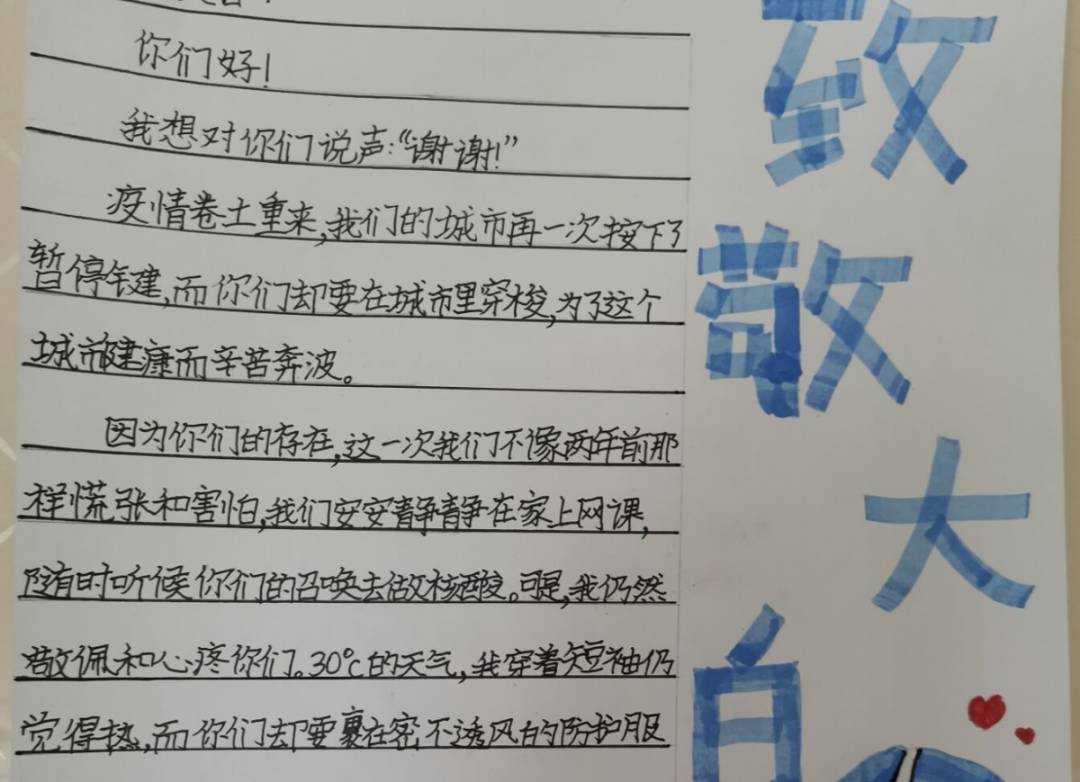 你们好！
我想对你们说声："谢谢！"
疫情卷土重来，我们的城市再一次按下了
暂停键，而你们却要在城市里穿梭，为了这个
城市健康而辛苦奔波。
因为你们的存在，这一次我们不像两年前那
样慌张和害怕，我们安安静静在家上网课，
随时听候你们的召唤去做核酸。可是，我仍然
敬佩和心疼你们。30℃的天气，我穿着短袖仍
觉得热，而你们却要裹在密不透风的防护服
致
敬
大
白